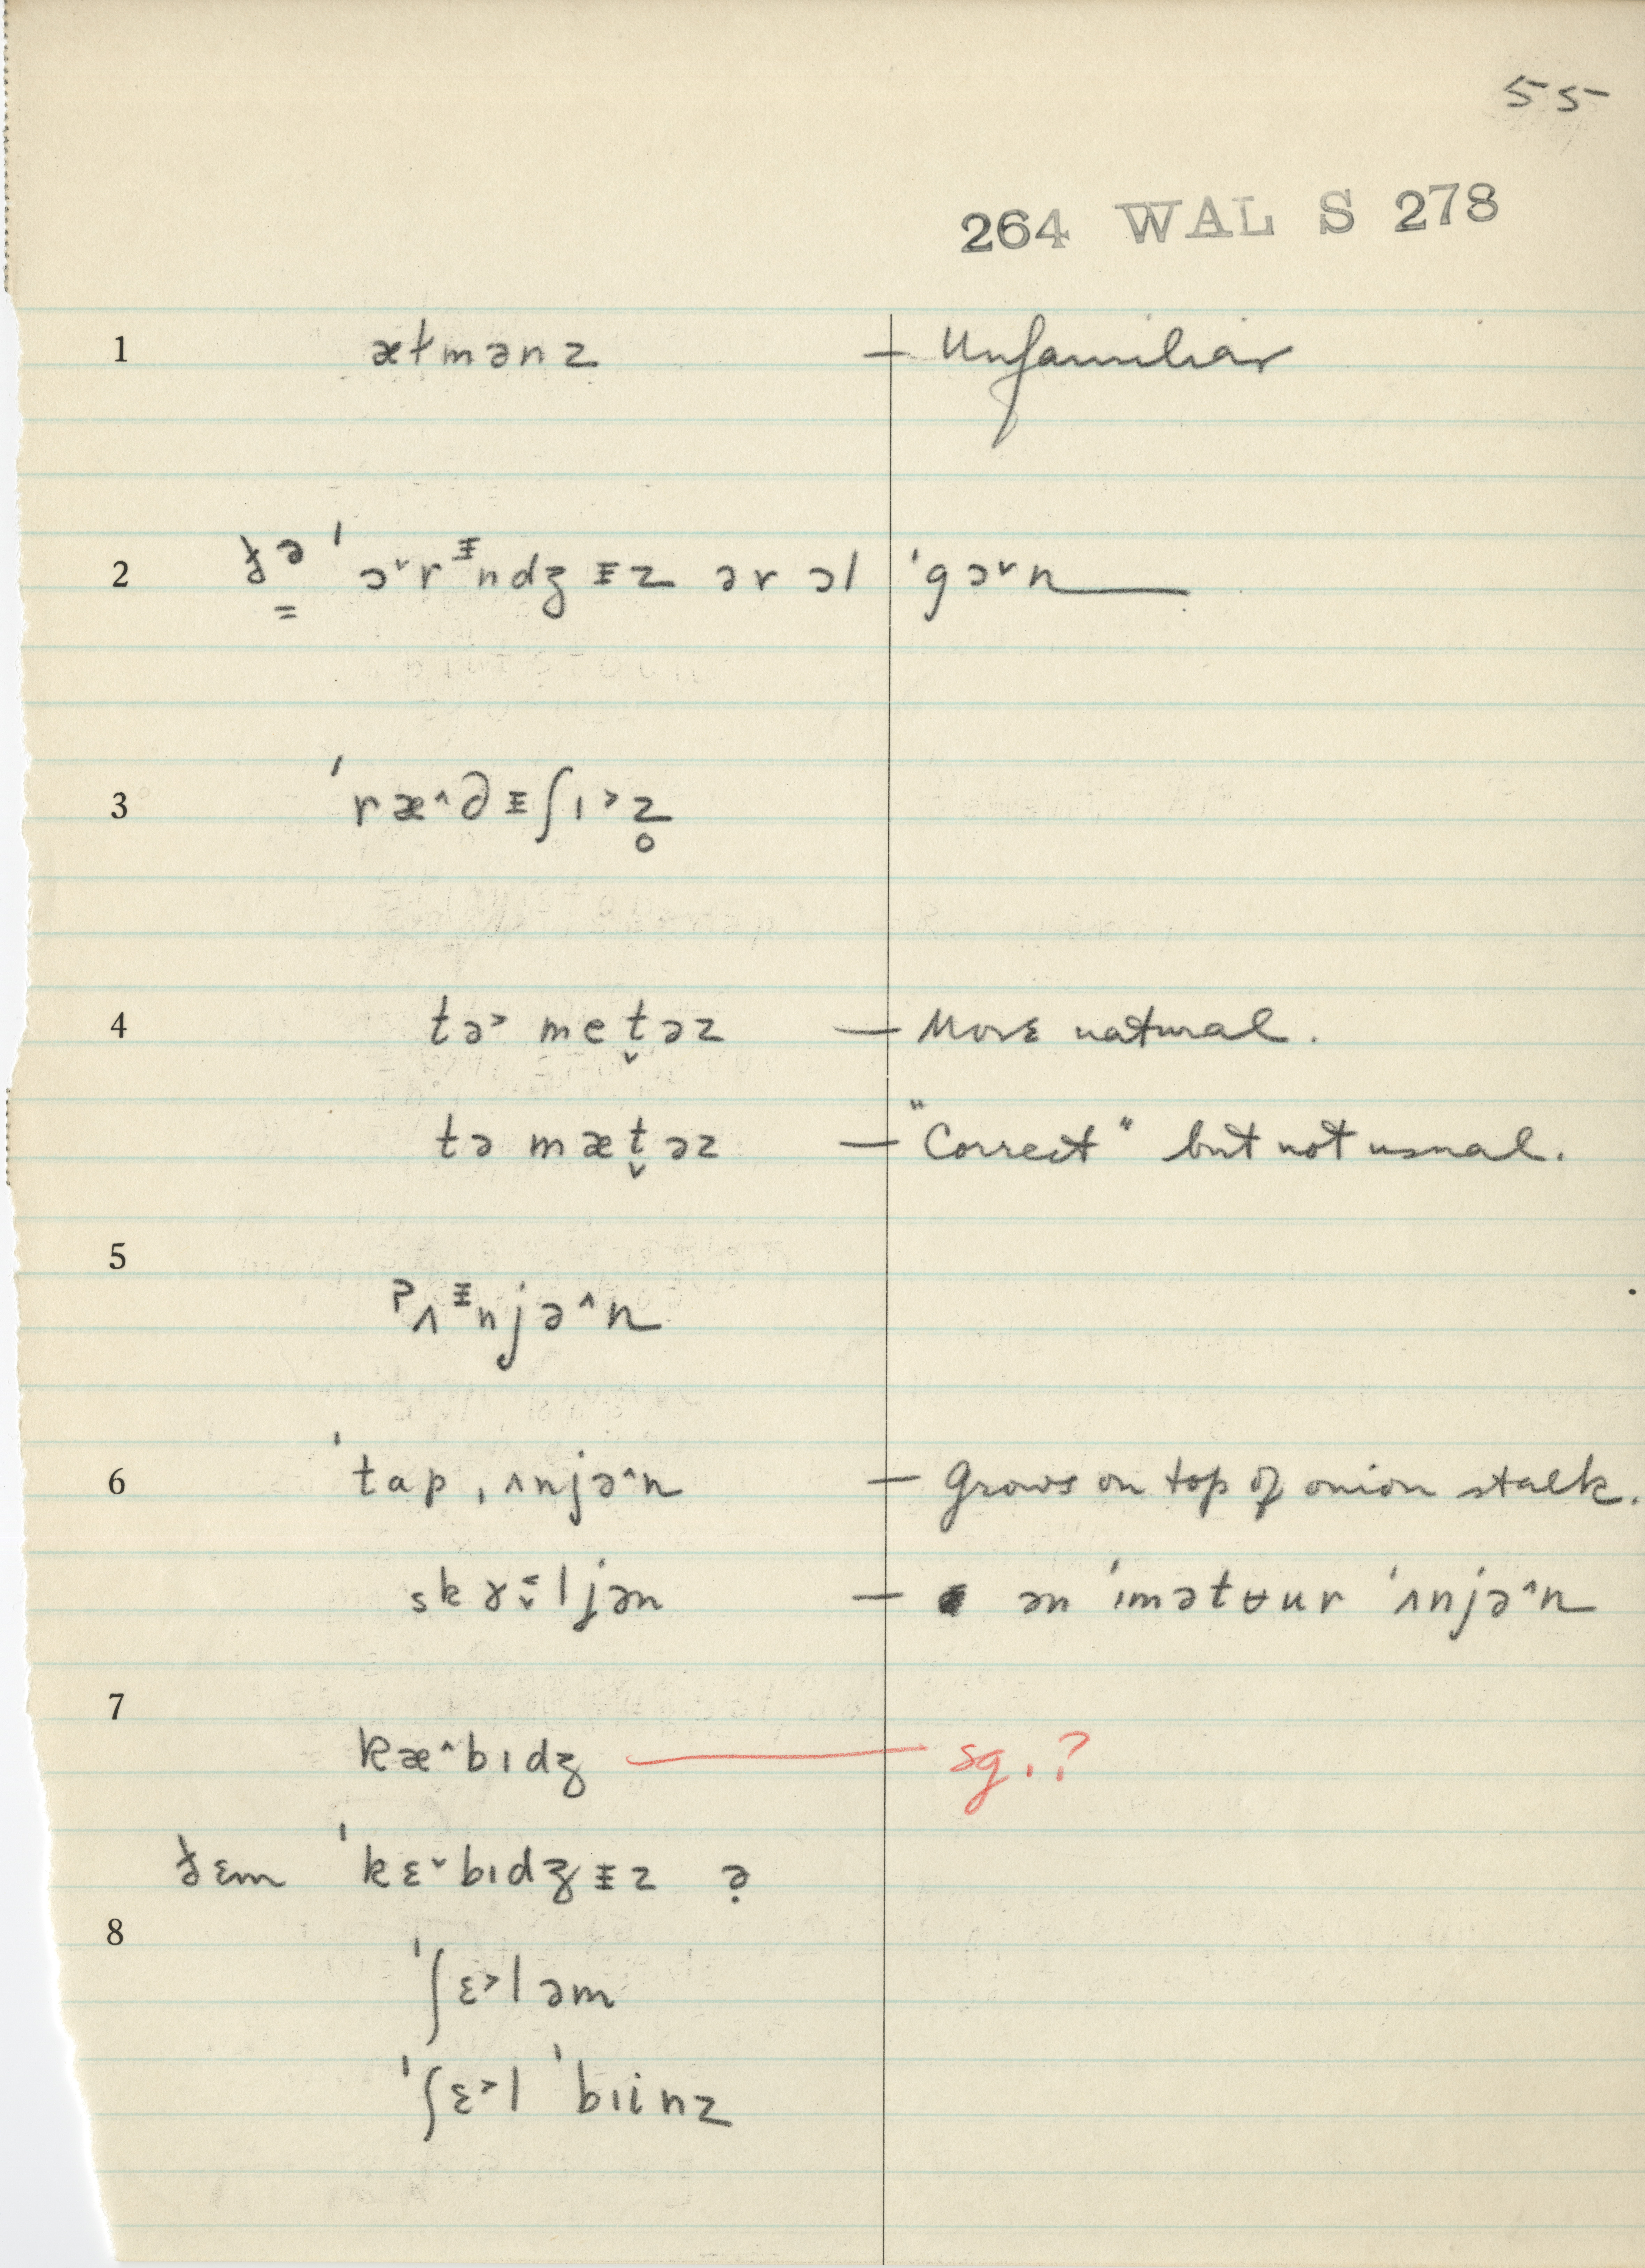 55
264 WAL S 278
1 æɫmənz — Unfamiliar
2 ɟə̳ ˈɔ˅rᵻndʒᵻz ər ɔl ˈgɔ˅n
3 ˈræ˄∂ᵻʃɪ˃z̥
4 tə˃ met̬əz — More natural.
tə mæt̬əz — "Correct" but not usual.
5
ʔʌᵻnjə˄n
6 ˈtap ˌʌnjə˄n — Grows on top of onion stalk.
— ən ˈɪmətʉur ˈʌnjə˄n
7
kæ˄bɪdʒ — sg.?
ˈkɛ˅bɪdʒᵻz
8
ˈʃɛ˃ləm
ˈʃɛ˃l ˈbɪinz